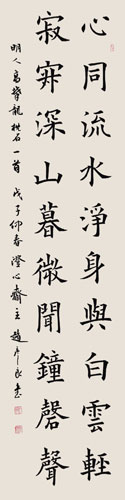 心同流水淨身與白雲輕
寂寂深山暮微聞鐘磬聲
明人高攀龍枕石一首 戊子仲春 澄心齋主